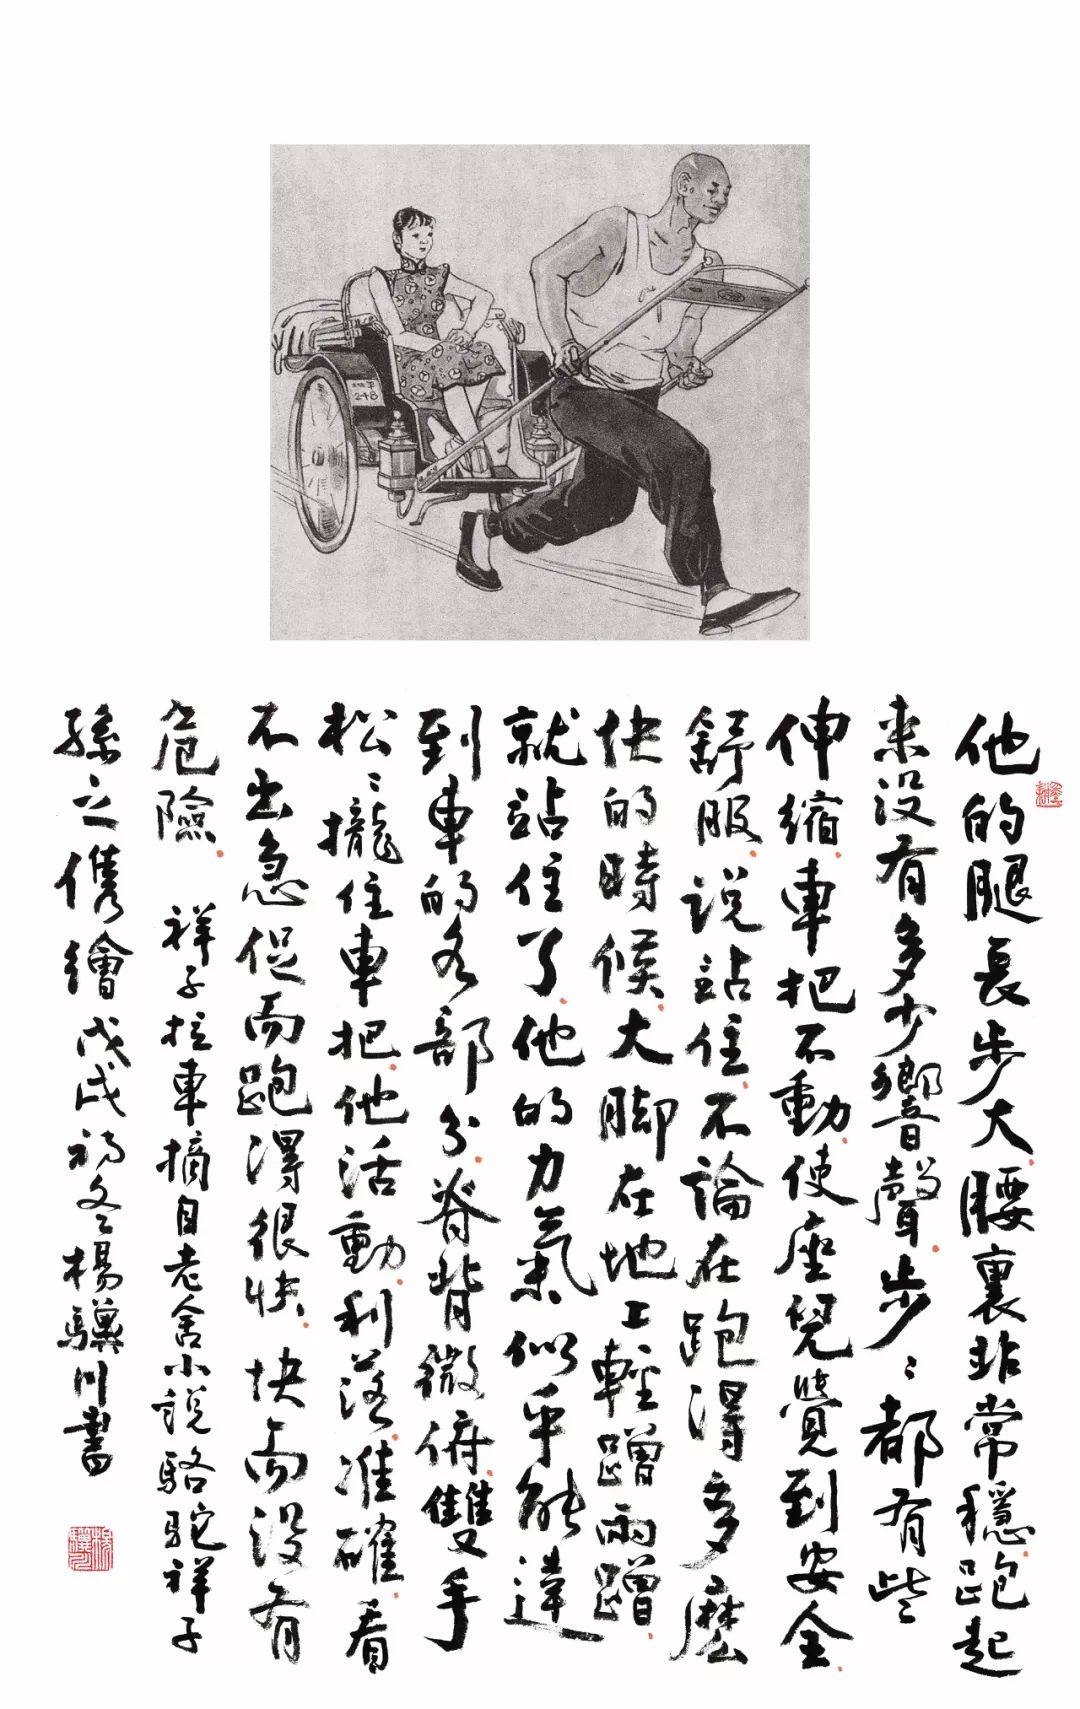 北平
248
他的腿長步大腰裏非常穩跑起
来没有多少響聲步〻都有些
伸缩車把不動使座兒覺到安全
舒服说站住不論在跑得多麽
快的時候大脚在地上輕蹭兩蹭
就站住了他的力氣似乎能達
到車的各部分脊背微俯雙手
松〻攏住車把他活動利落准確看
不出急促而跑得很快快而没有
危險 祥子拉車摘自老舍小説駱駝祥子
孫之儁繪戊戌初冬楊驥川書